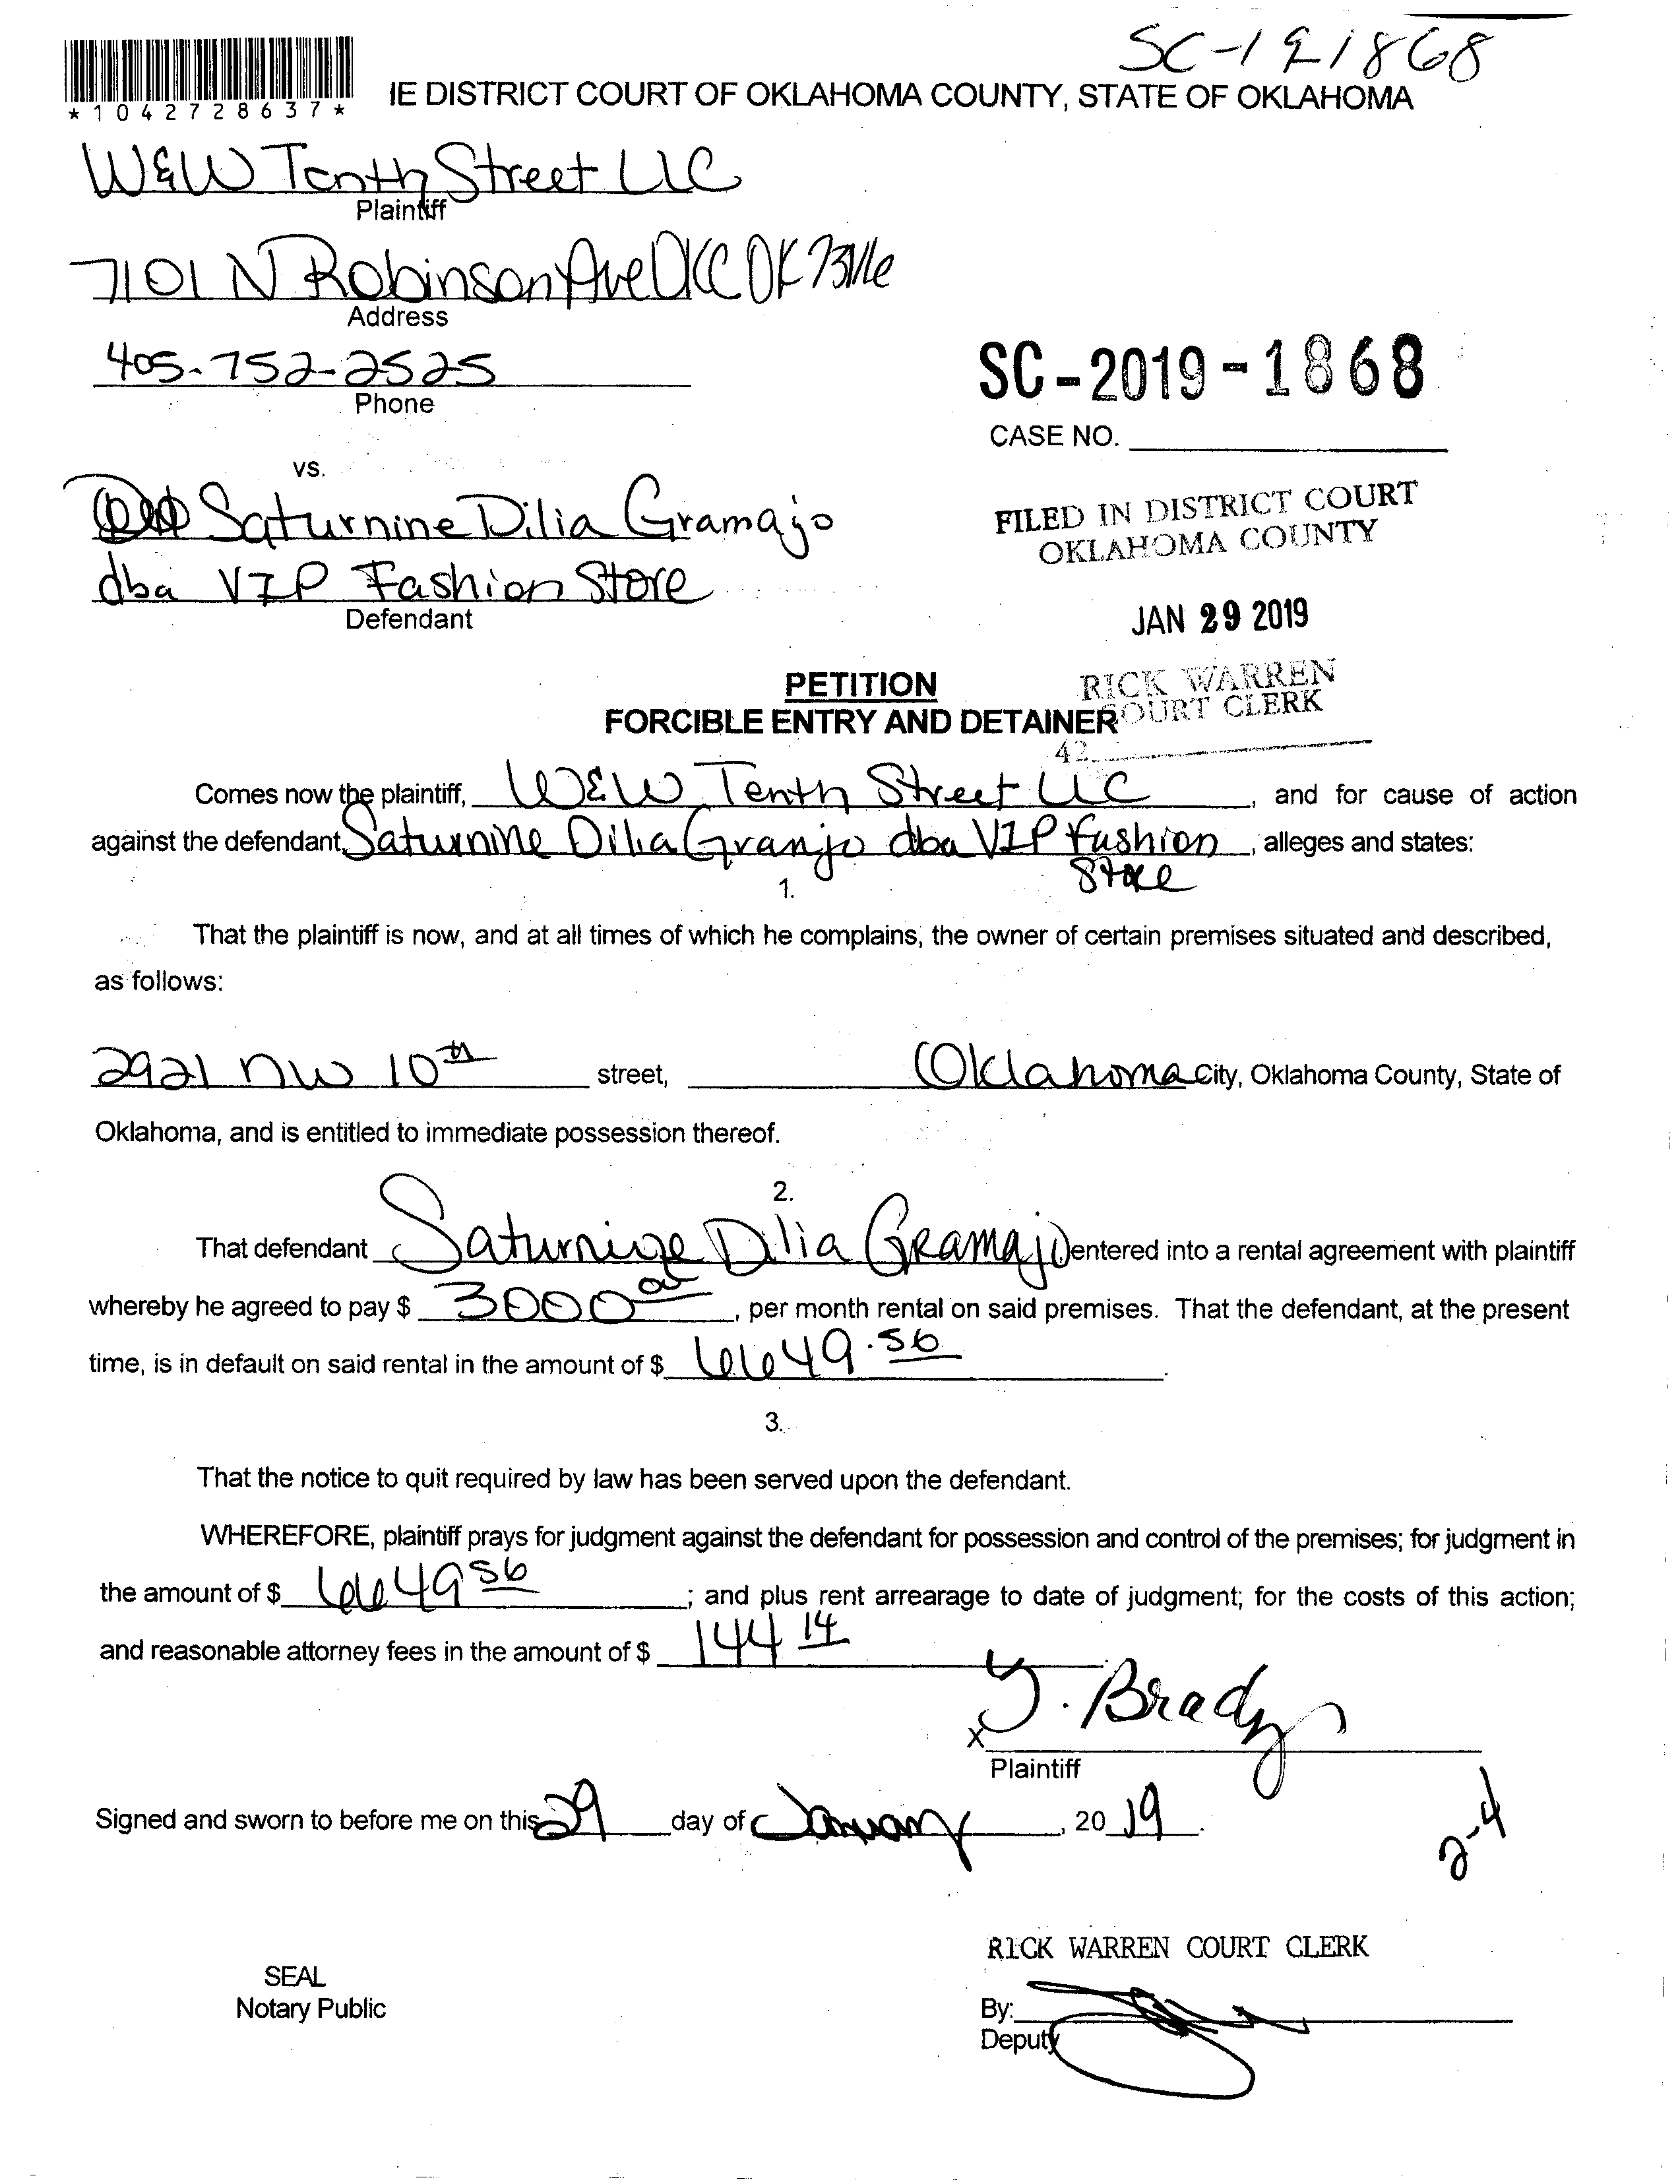 SC-191868
*1042728637*
IE DISTRICT COURT OF OKLAHOMA COUNTY, STATE OF OKLAHOMA
W&W Tenth Street LLC
Plaintiff
7101 N Robinson Ave OKC OK 73116
Address
405-752-2525
Phone
SC-2019-1868
CASE NO.
vs.
Saturnine Dilia Gramajo
dba VIP Fashion Store
Defendant
FILED IN DISTRICT COURT
OKLAHOMA COUNTY
JAN 29 2019
RICK WARREN
COURT CLERK
42
PETITION
FORCIBLE ENTRY AND DETAINER
Comes now the plaintiff, W&W Tenth Street LLC, and for cause of action
against the defendant, Saturnine Dilia Gramjo dba VIP Fashion, alleges and states:
Store
1.
That the plaintiff is now, and at all times of which he complains, the owner of certain premises situated and described,
as follows:
2921 NW 10th street, Oklahoma City, Oklahoma County, State of
Oklahoma, and is entitled to immediate possession thereof.
2.
That defendant Saturnine Dilia Gramajo entered into a rental agreement with plaintiff
whereby he agreed to pay $ 3000 00, per month rental on said premises. That the defendant, at the present
time, is in default on said rental in the amount of $ 6649.56.
3.
That the notice to quit required by law has been served upon the defendant.
WHEREFORE, plaintiff prays for judgment against the defendant for possession and control of the premises; for judgment in
the amount of $ 6649 56; and plus rent arrearage to date of judgment; for the costs of this action;
and reasonable attorney fees in the amount of $ 144 14.
X Y. Brady
Plaintiff
Signed and sworn to before me on this 29 day of January, 2019.
2-4
RICK WARREN COURT CLERK
SEAL
Notary Public
By:
Deputy